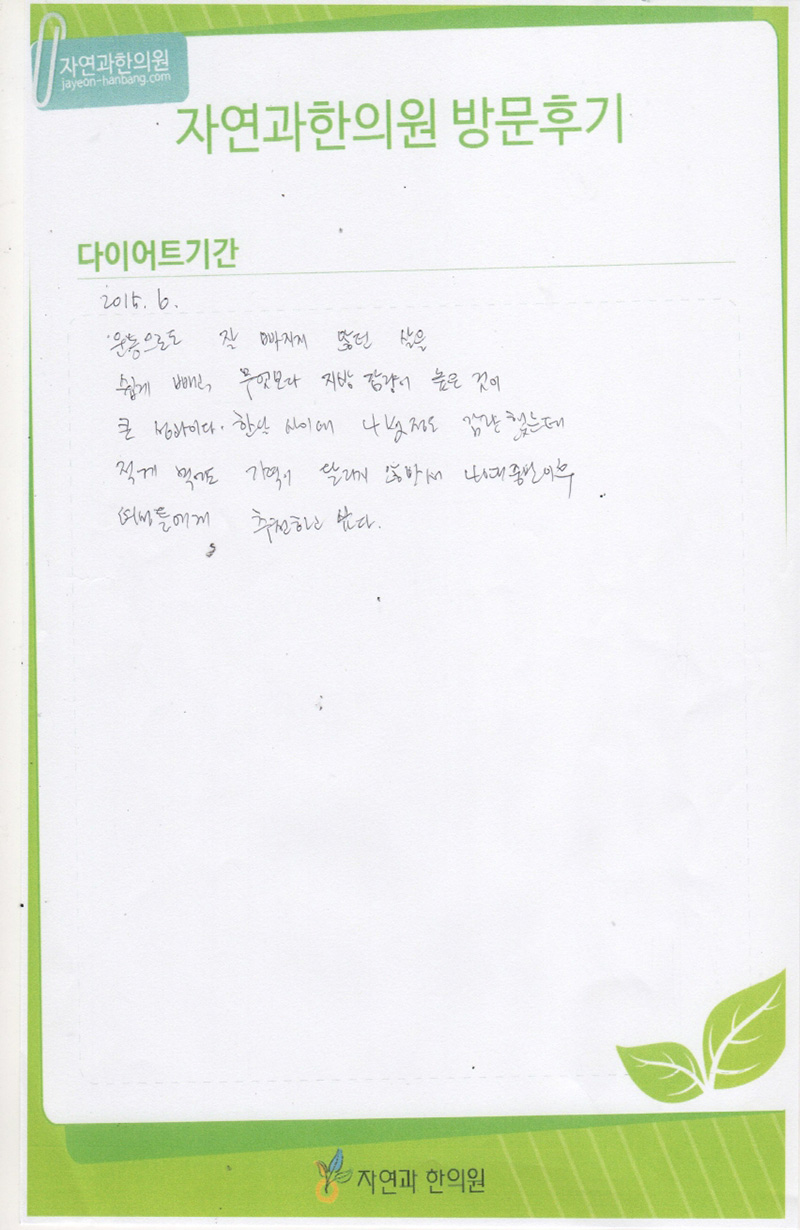 자연과한의원
jayeon-hanbang.com
자연과한의원 방문후기
다이어트기간
2015. 6.
운동으로도 잘 빠지지 않던 살을
쉽게 빼고, 무엇보다 지방 감량이 높은 것이
큰 성과이다. 한달 사이에 4kg정도 감량 했는데
적게 먹어도 기력이 딸리지 않아서
에게 추천하고 싶다.
자연과 한의원